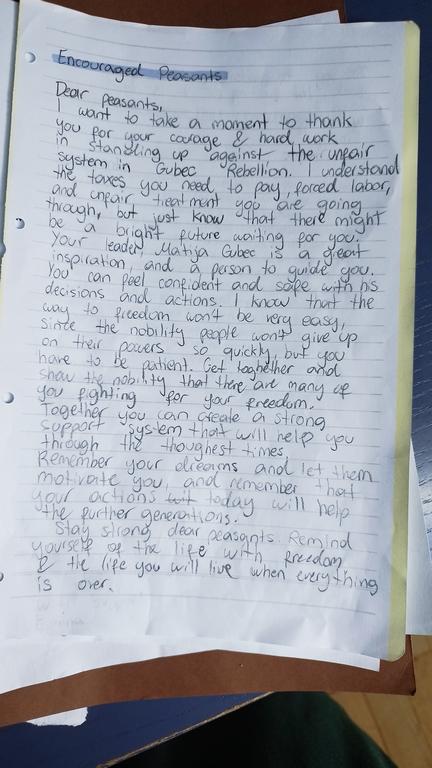 Encouraged Peasants
Dear peasants,
I want to take a moment to thank
you for your courage & hard work
in standing up against the unfair
system in Gubec Rebellion. I understand
the taxes you need to pay, forced labor,
and unfair treatment you are going
through, but just know that there might
be a bright future waiting for you.
Your leader, Matija Gubec is a great
inspiration, and a person to guide you.
You can feel confident and safe with his
decisions and actions. I know that the
way to freedom won't be very easy,
since the nobility people won't give up
on their powers so quickly, but you
have to be patient. Get toghether and
show the nobility that there are many of
you fighting for your freedum.
Together you can create a strong
support system that will help you
through the thoughest times.
Remember your dreams and let them
motivate you, and remember that
your actions today will help
the further generations.
Stay strong dear peasants. Remind
yourself of the life with freedom
& the life you will live when everything
is over.